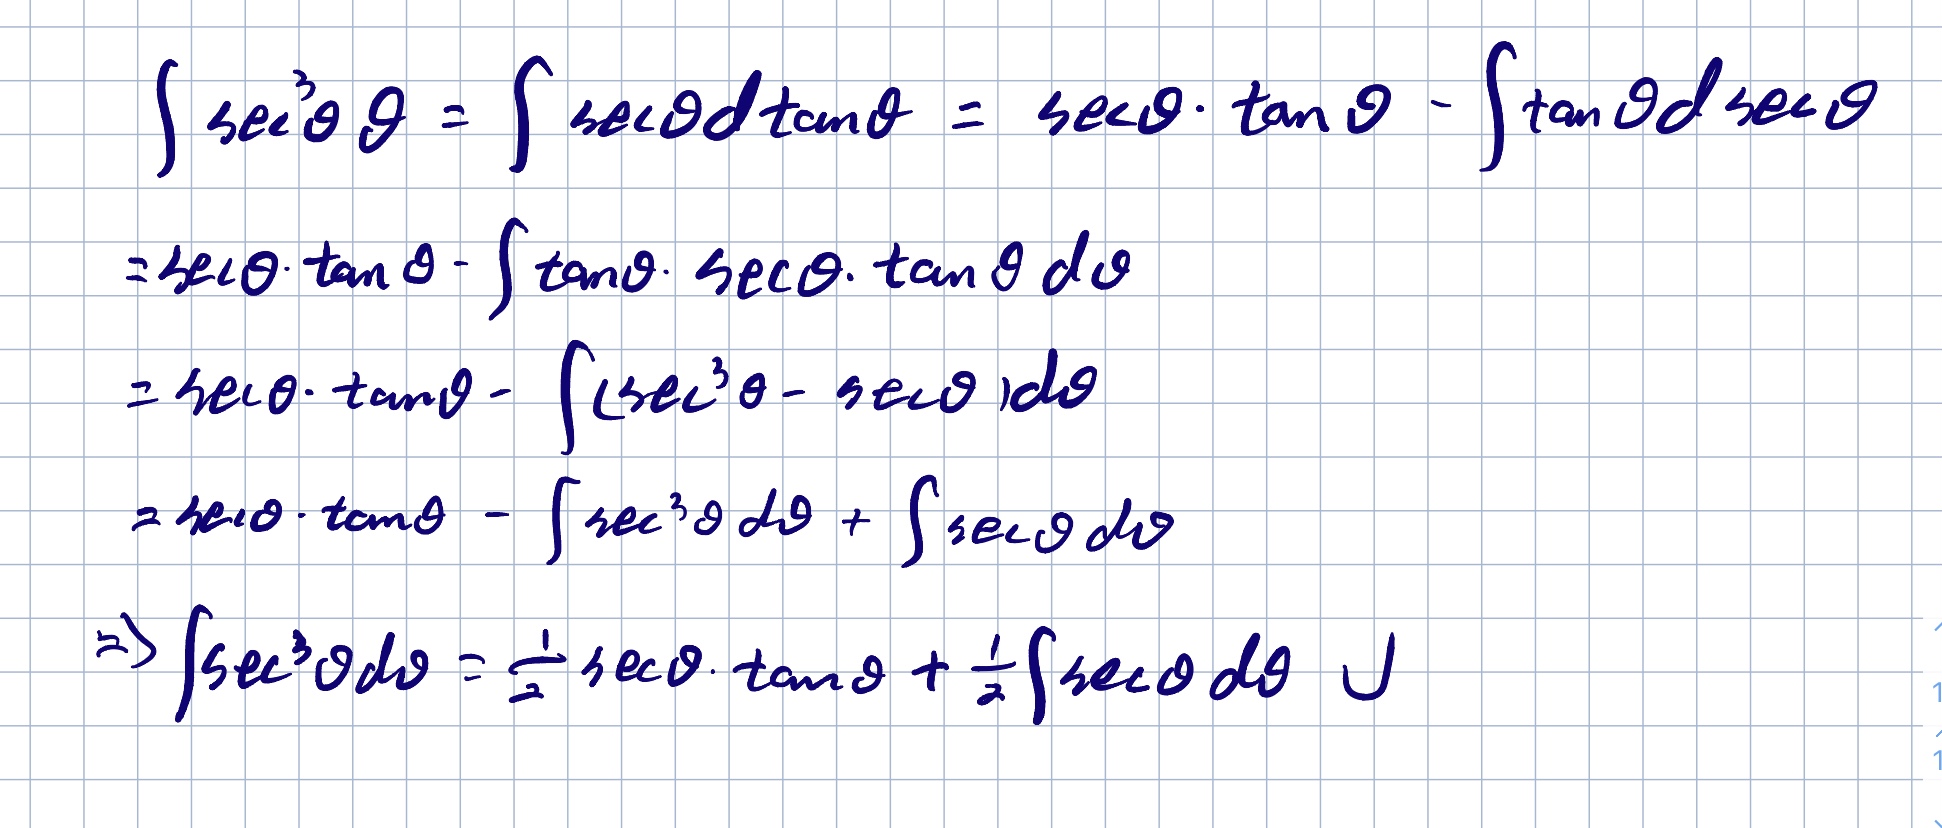 ∫ sec³θ θ = ∫ secθ d tanθ = secθ · tanθ - ∫ tanθ d secθ
= secθ · tanθ - ∫ tanθ · secθ · tanθ dθ
= secθ · tanθ - ∫ (sec³θ - secθ) dθ
= secθ · tanθ - ∫ sec³θ dθ + ∫ secθ dθ
=> ∫ sec³θ dθ = 1/2 secθ · tanθ + 1/2 ∫ secθ dθ